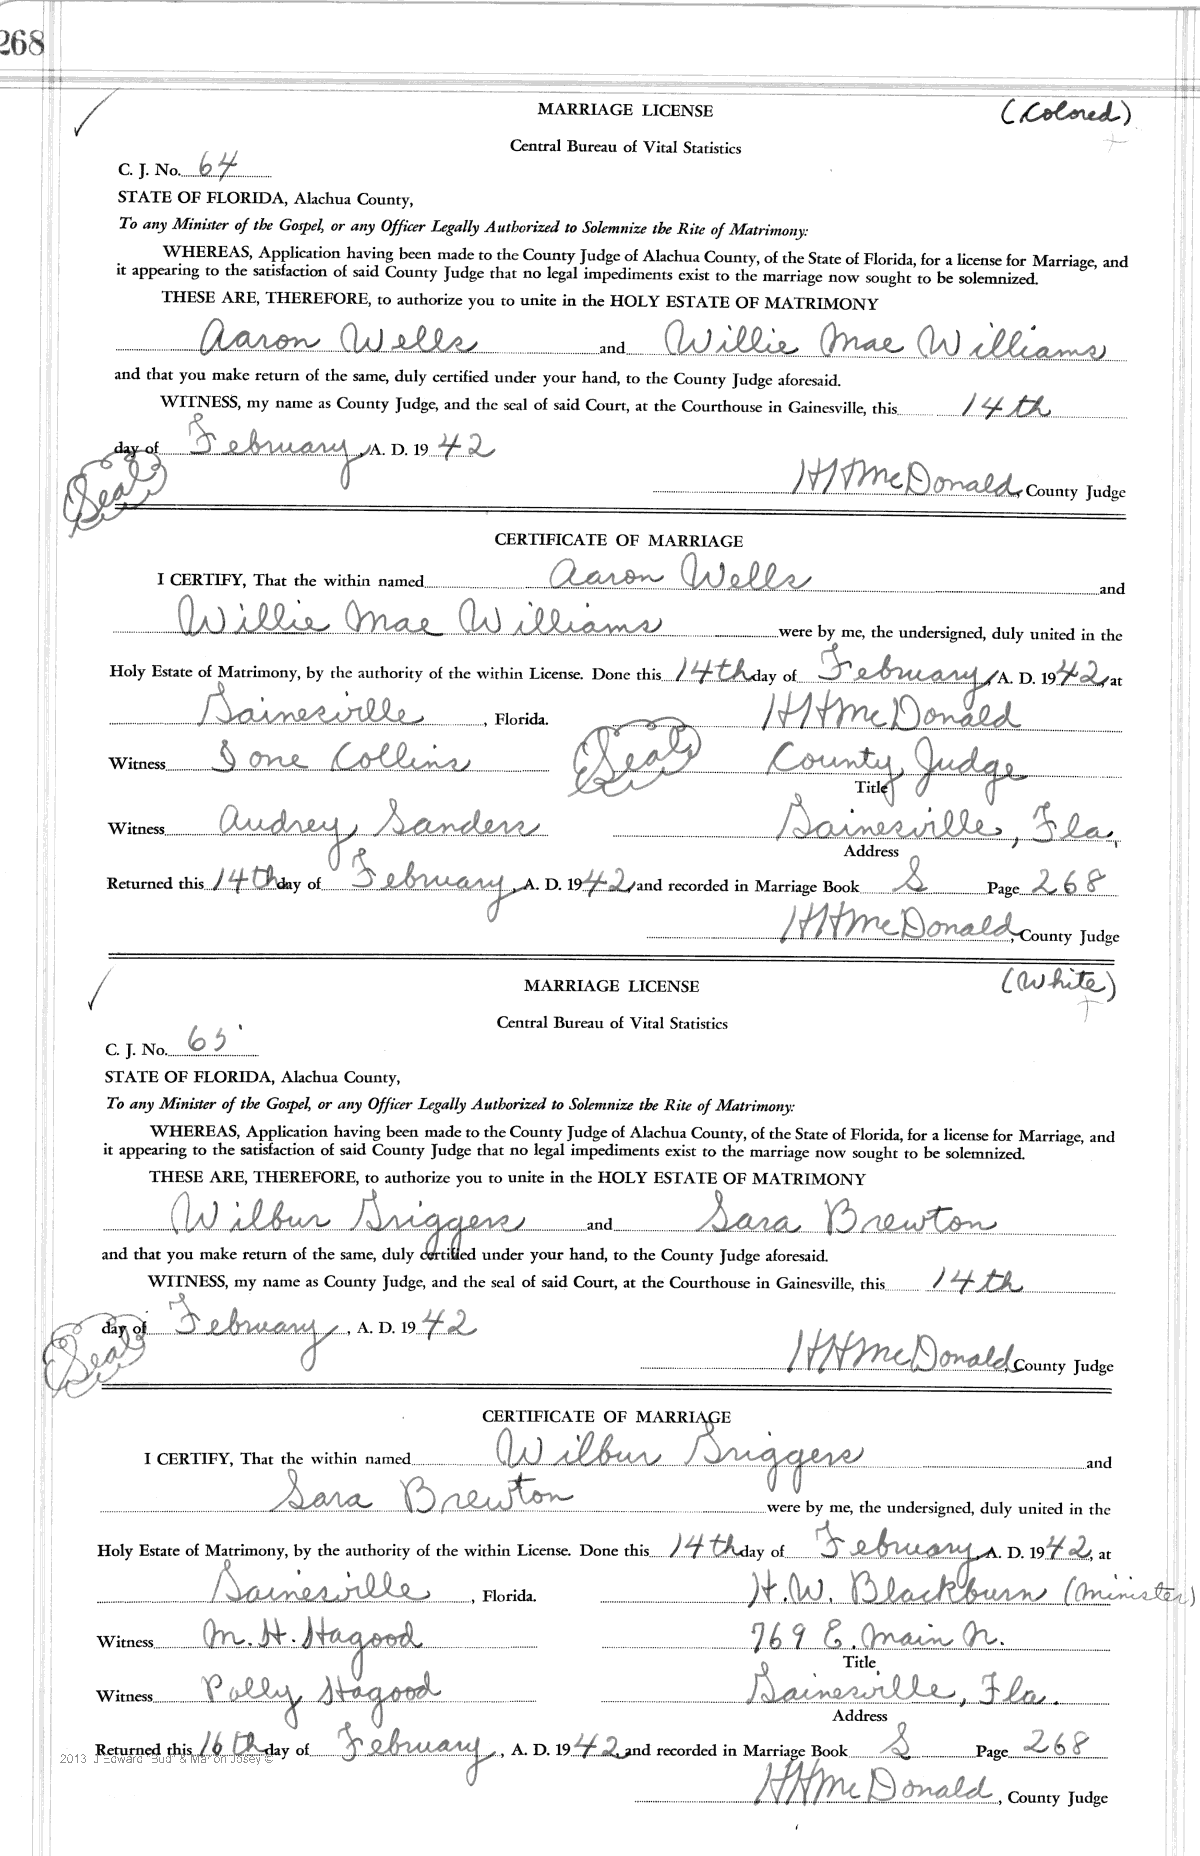 268
MARRIAGE LICENSE (Colored)
Central Bureau of Vital Statistics
C. J. No. 64
STATE OF FLORIDA, Alachua County,
To any Minister of the Gospel, or any Officer Legally Authorized to Solemnize the Rite of Matrimony:
WHEREAS, Application having been made to the County Judge of Alachua County, of the State of Florida, for a license for Marriage, and
it appearing to the satisfaction of said County Judge that no legal impediments exist to the marriage now sought to be solemnized.
THESE ARE, THEREFORE, to authorize you to unite in the HOLY ESTATE OF MATRIMONY
Aaron Wells and Willie Mae Williams
and that you make return of the same, duly certified under your hand, to the County Judge aforesaid.
WITNESS, my name as County Judge, and the seal of said Court, at the Courthouse in Gainesville, this 14th
day of February, A. D. 1942
Seal HHMcDonald, County Judge
CERTIFICATE OF MARRIAGE
I CERTIFY, That the within named Aaron Wells and
Willie Mae Williams were by me, the undersigned, duly united in the
Holy Estate of Matrimony, by the authority of the within License. Done this 14th day of February, A. D. 1942, at
Gainesville, Florida. HHMcDonald
Witness Ione Collins Seal County Judge
Title
Witness Audrey Sanders Gainesville, Fla.
Address
Returned this 14th day of February, A. D. 1942, and recorded in Marriage Book S Page 268
HHMcDonald, County Judge
MARRIAGE LICENSE (White)
Central Bureau of Vital Statistics
C. J. No. 65
STATE OF FLORIDA, Alachua County,
To any Minister of the Gospel, or any Officer Legally Authorized to Solemnize the Rite of Matrimony:
WHEREAS, Application having been made to the County Judge of Alachua County, of the State of Florida, for a license for Marriage, and
it appearing to the satisfaction of said County Judge that no legal impediments exist to the marriage now sought to be solemnized.
THESE ARE, THEREFORE, to authorize you to unite in the HOLY ESTATE OF MATRIMONY
Wilbur Griggers and Sara Brewton
and that you make return of the same, duly certified under your hand, to the County Judge aforesaid.
WITNESS, my name as County Judge, and the seal of said Court, at the Courthouse in Gainesville, this 14th
day of February, A. D. 1942
Seal HHMcDonald, County Judge
CERTIFICATE OF MARRIAGE
I CERTIFY, That the within named Wilbur Griggers and
Sara Brewton were by me, the undersigned, duly united in the
Holy Estate of Matrimony, by the authority of the within License. Done this 14th day of February, A. D. 1942, at
Gainesville, Florida. H.W. Blackburn (Minister)
Witness M. H. Hagood 769 E. Main N.
Title
Witness Polly Hagood Gainesville, Fla.
Address
Returned this 16th day of February, A. D. 1942, and recorded in Marriage Book S Page 268
2013 J Edward "Bud" & Marion Josey ©
HHMcDonald, County Judge